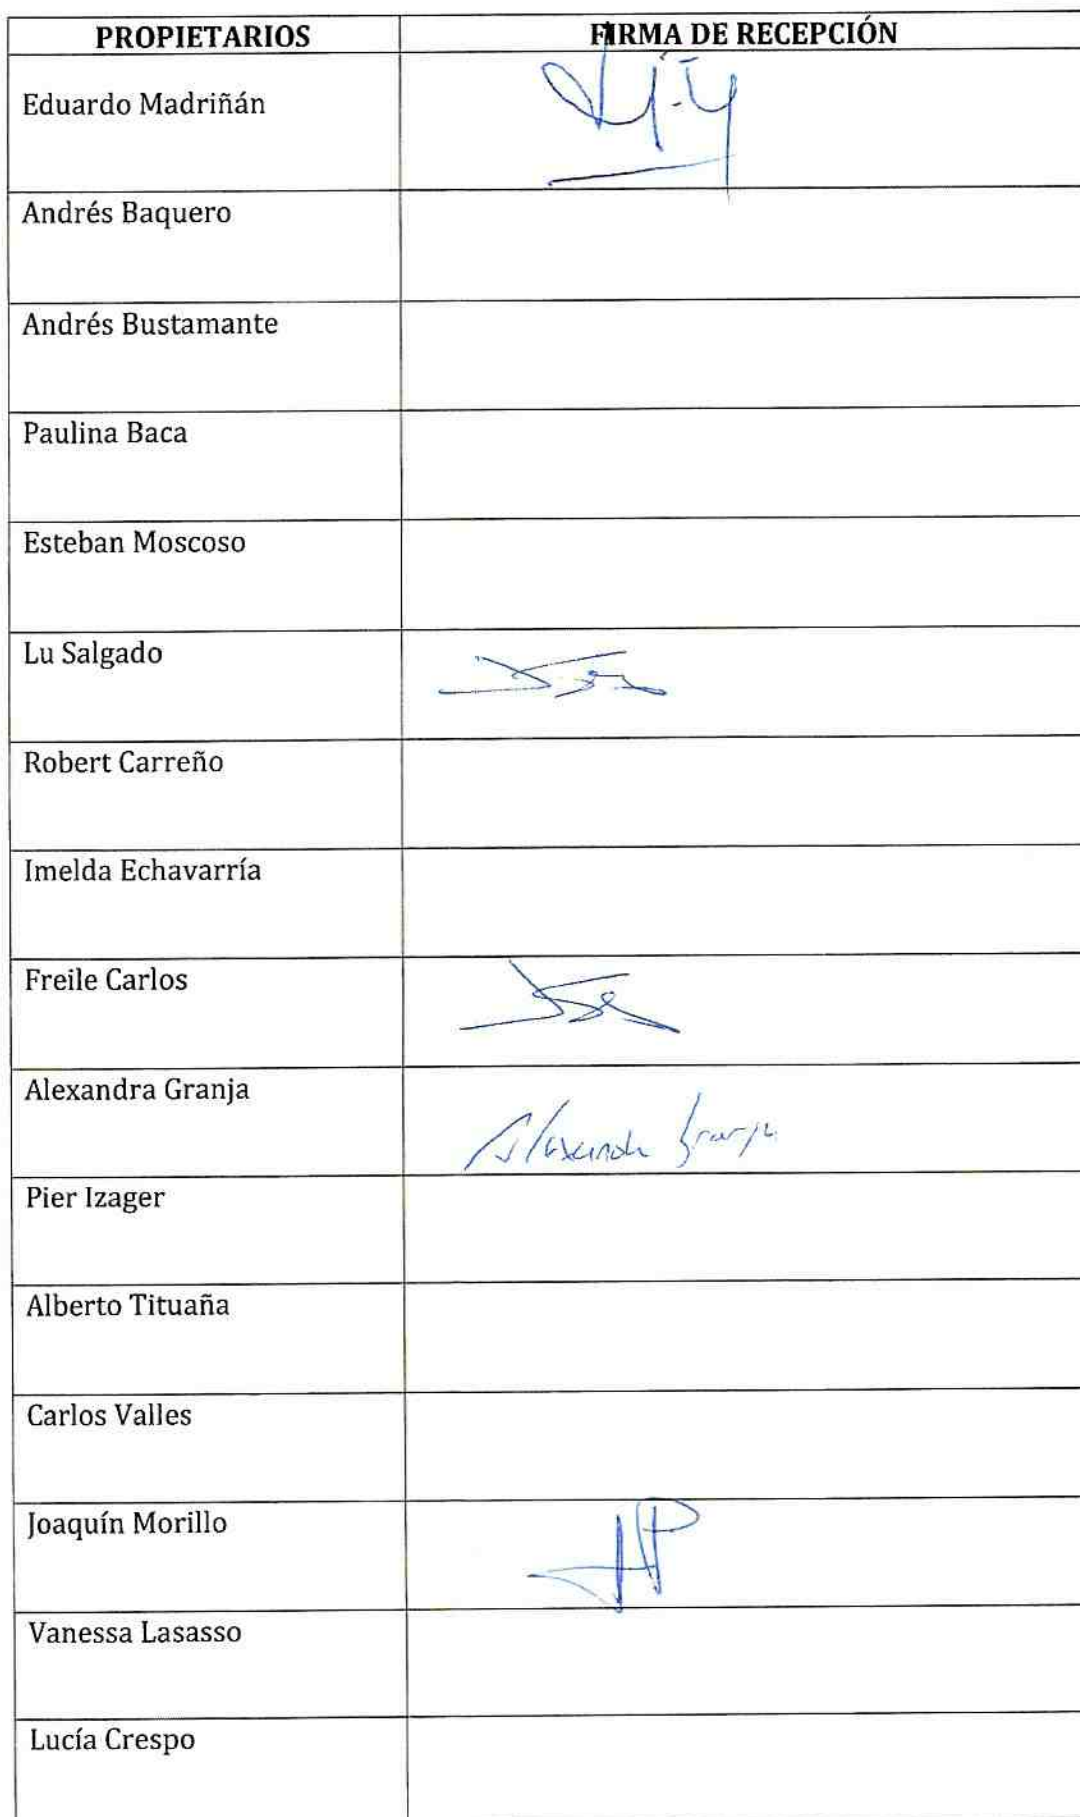 PROPIETARIOS FIRMA DE RECEPCIÓN
Eduardo Madriñán
Andrés Baquero
Andrés Bustamante
Paulina Baca
Esteban Moscoso
Lu Salgado
Robert Carreño
Imelda Echavarría
Freile Carlos
Alexandra Granja
Alexandra Granja
Pier Izager
Alberto Tituaña
Carlos Valles
Joaquín Morillo
Vanessa Lasasso
Lucía Crespo